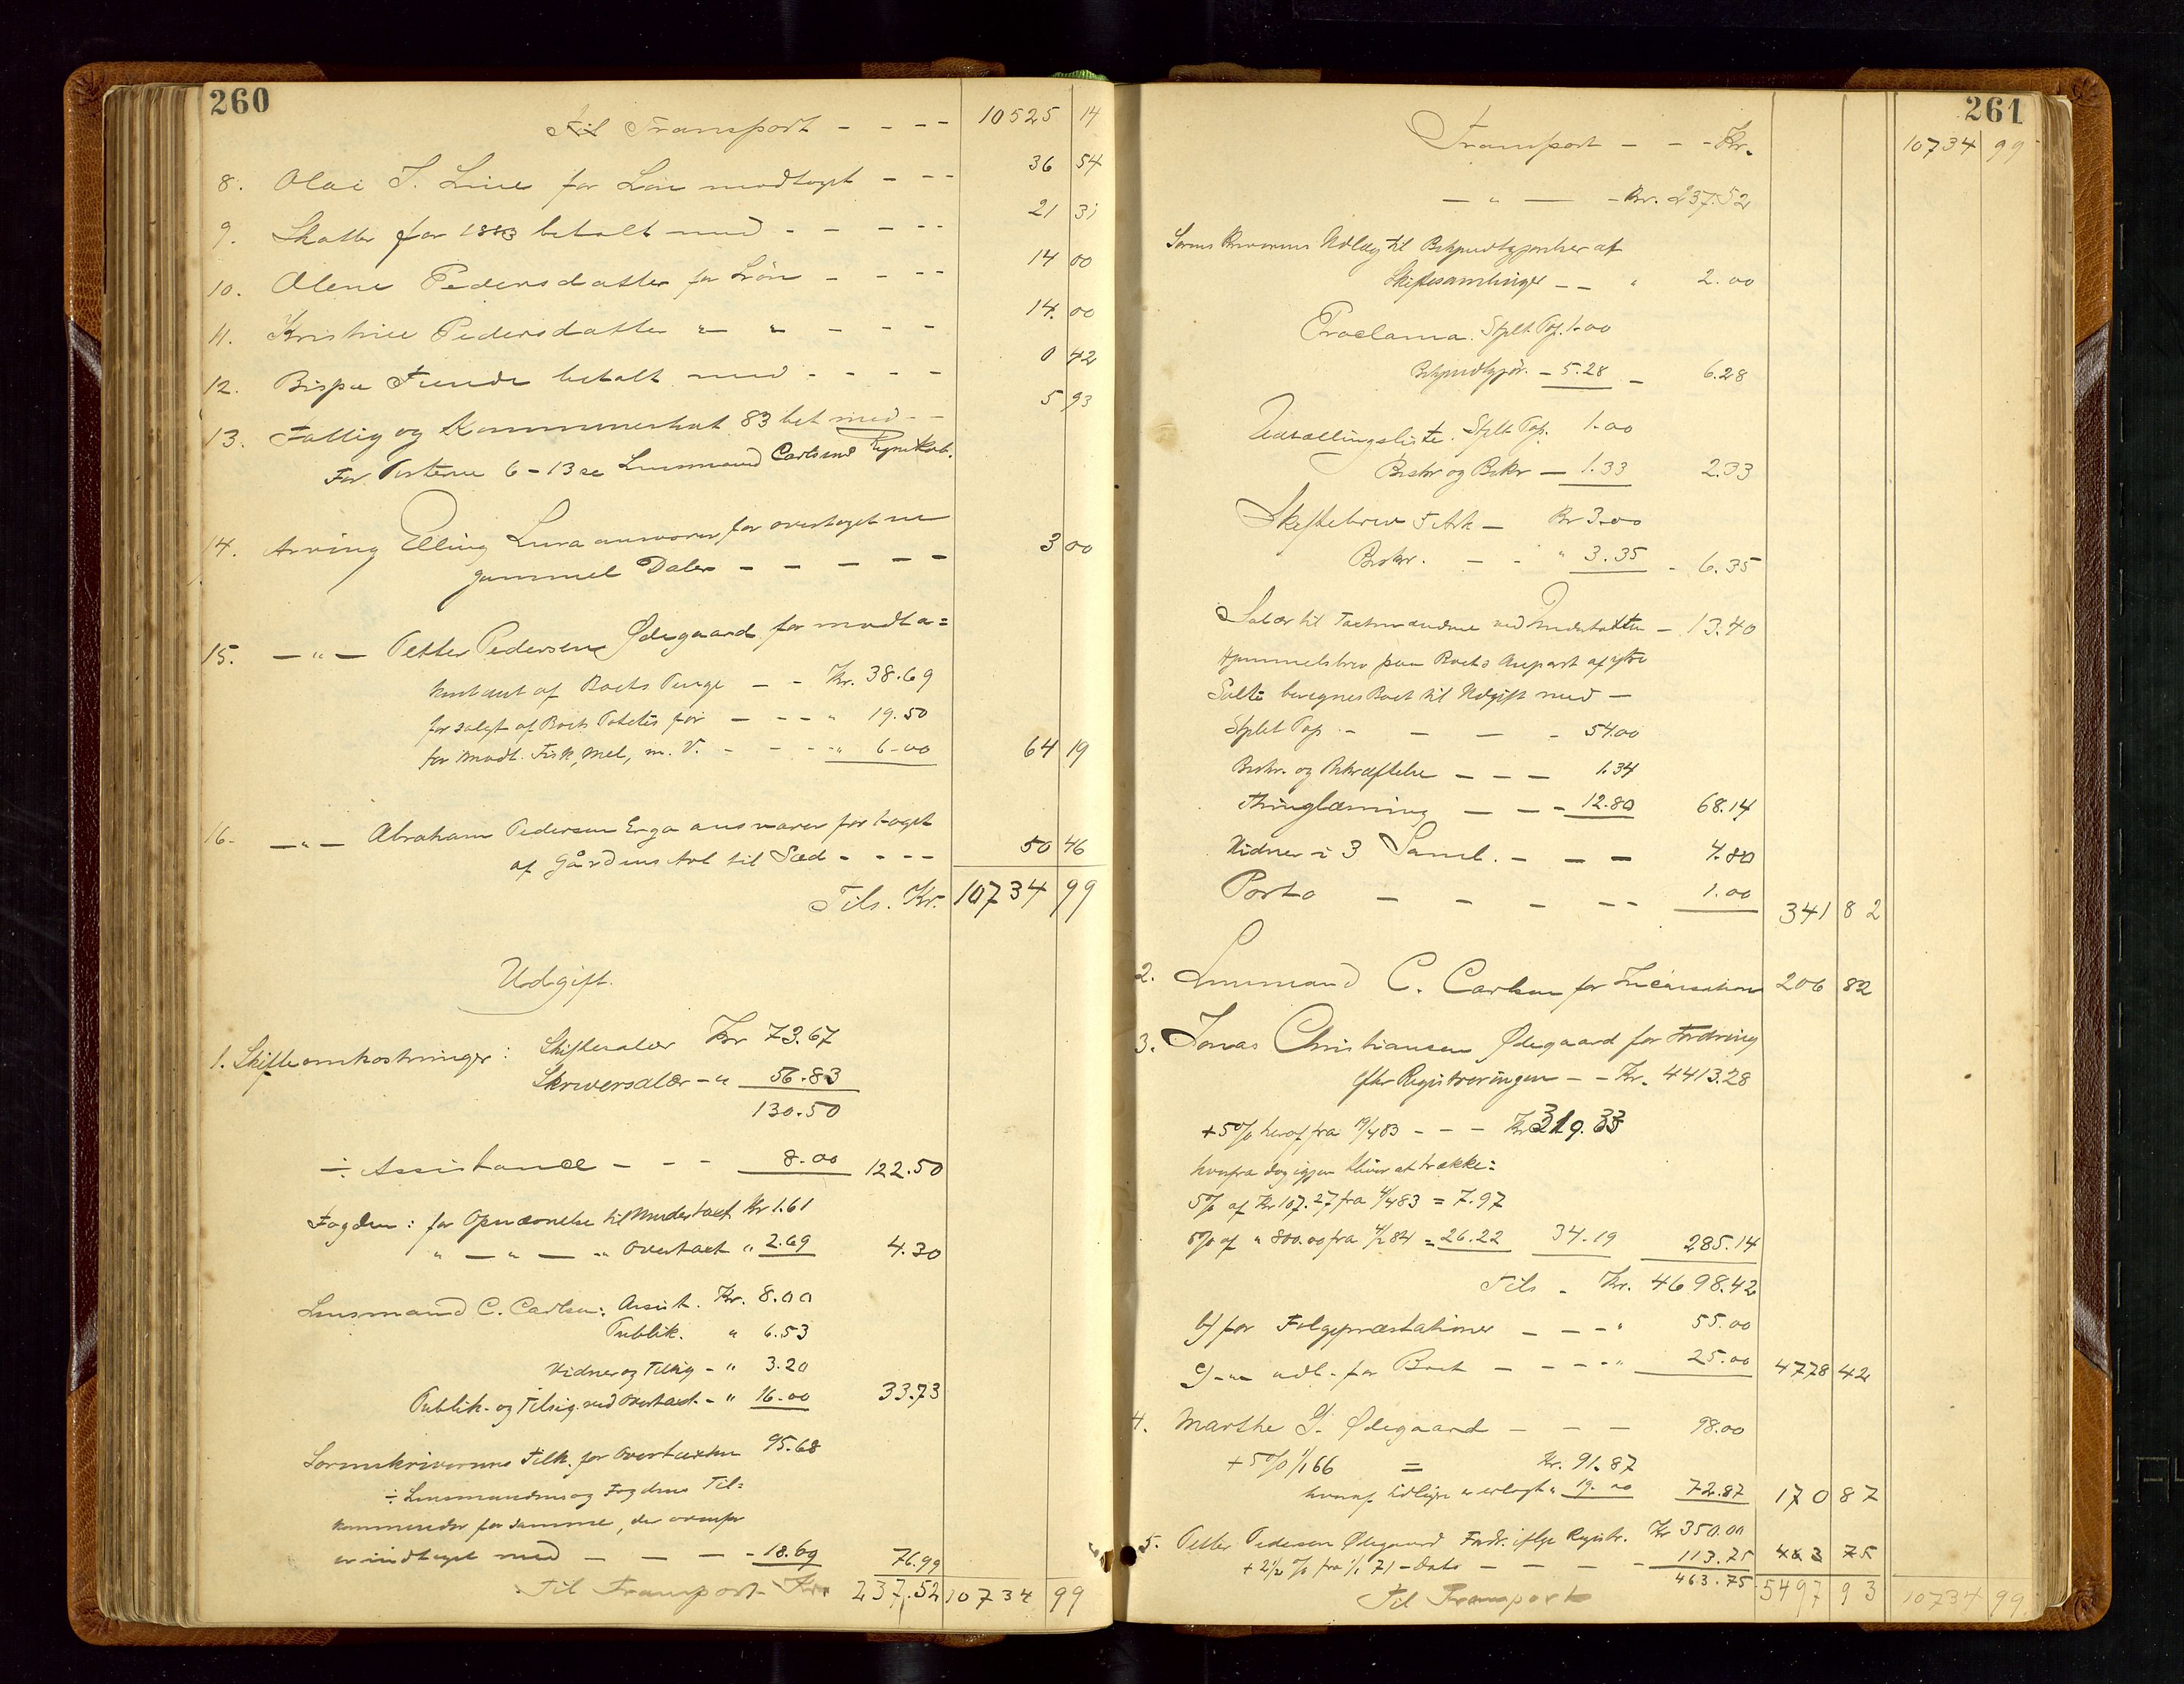 260
Til Transport - - - - 10525 14
8. Olai T. Line for Løn modtaget - - - 36 54
9. Skatter for 1883 betalt med - - - - - 21 31
10. Olene Pedersdatter for Løn - - - - 14 00
11. Kristine Pedersdatter " " - - - 14. 00
12. Bispe Tiende betalt med - - - - 0 42
13. Fattig og Kommuneskat 83 bet med - - 5 93
For Posterne 6-13 se Lensmand Carlsens Regnskab.
14. Arving Elling Lura ansvarer for overtaget en
gammel Daler - - - - - 3 00
15. — " — Petter Pedersen Ødegaard for modta=
kontant af Boets Penge - - Kr. 38.69
for solgt af Boets Poteter for - - - " 19.50
for modt. Fisk, Mel, m. V. - - - " 6-00 64 19
16. — " — Abraham Pedersen Erga ansvarer for taget
af Gårdens Avl til Sæd - - - - 50 46
Tils. Kr. 10734 99
Udgift.
1. Skifteomkostninger: Skiftesalær Kr 73.67
Skriversalær - " 56.83
130.50
÷ Assistance - - - 8.00 122.50
Fogden: for Opnævnelse til Undertaxt Kr 1.61
" — " — " Overtaxt " 2.69 4.30
Lensmand C. Carlsen: Assist. Kr. 8.00
Publik. " 6.53
Vidner og Tilsig - " 3.20
Publik. og Tilsig. ved Overtaxt. - " 16-00 33.73
Sorenskriverens Tilk. for Overtaxten 95.68
÷ Lensmandens og Fogdens Til=
kommender for samme, der ovenfor
er indtaget med — — — - 18.69 76.99
Til Transport Kr. 237.52 10734 99
261
Transport - - - Kr. 10734 99
— " — - Kr. 237.52
Sorenskriverens Udlæg til Bekjendtgjørelser af
Skiftesamlinger - - " 2.00
Proclama. Stplt. Pap. 1.00
Bekjendtgjør. - 5.28 - 6.28
Udtællingsliste. Stplt Pap. 1.00
Beskr og Bekr - 1.33 2.33
Skiftebrev 3 Ark - Kr 3.00
Beskr. - - " 3.35 - 6.35
Salær til Taxtmændene ved Undertaxten - 13.40
Hjemmelsbrev paa Boets Anpart af ytre
Solte beregnes Boet til Udgift med —
Stplt Pap. - — — - 54.00
Beskr. og Bekræftelse - - - 1.34
Thinglæsning - - - 12.80 68.14
Vidner i 3 Saml. - - - 4.80
Porto - - - - - 1.00 341 82
2. Lensmand C. Carlsen for Incassation 206 82
3. Jonas Christiansen Ødegaard for Fordring
efter Registreringen - - Kr. 4413.28
+ 5% heraf fra 19/4 83 - - - Kr 319.33
hvorfra dog igjen bliver at trække:
5% af Kr 107.27 fra 4/4 83 = 7.97
5% af " 800.00 fra 4/2 84 = 26.22 34.19 285.14
Tils. Kr. 4698.42
b) for Folgepræstationer - - - " 55.00
c) - " - udl. for Boet - - - - " 25.00 4778 42
4. Marthe G. Ødegaard - - - 98.00
+ 5% 1/1 66 = Kr. 91.87
hvoraf tidligere er erlagt " 19.00 72.87 170 87
5. Petter Pedersen Ødegaard Fordr. iflge Registr. Kr 350.00
+ 2½ % fra 1/1 71 - Dato - - - - 113.75 463 75
463.75
Til Transport 5497 93 10734 99